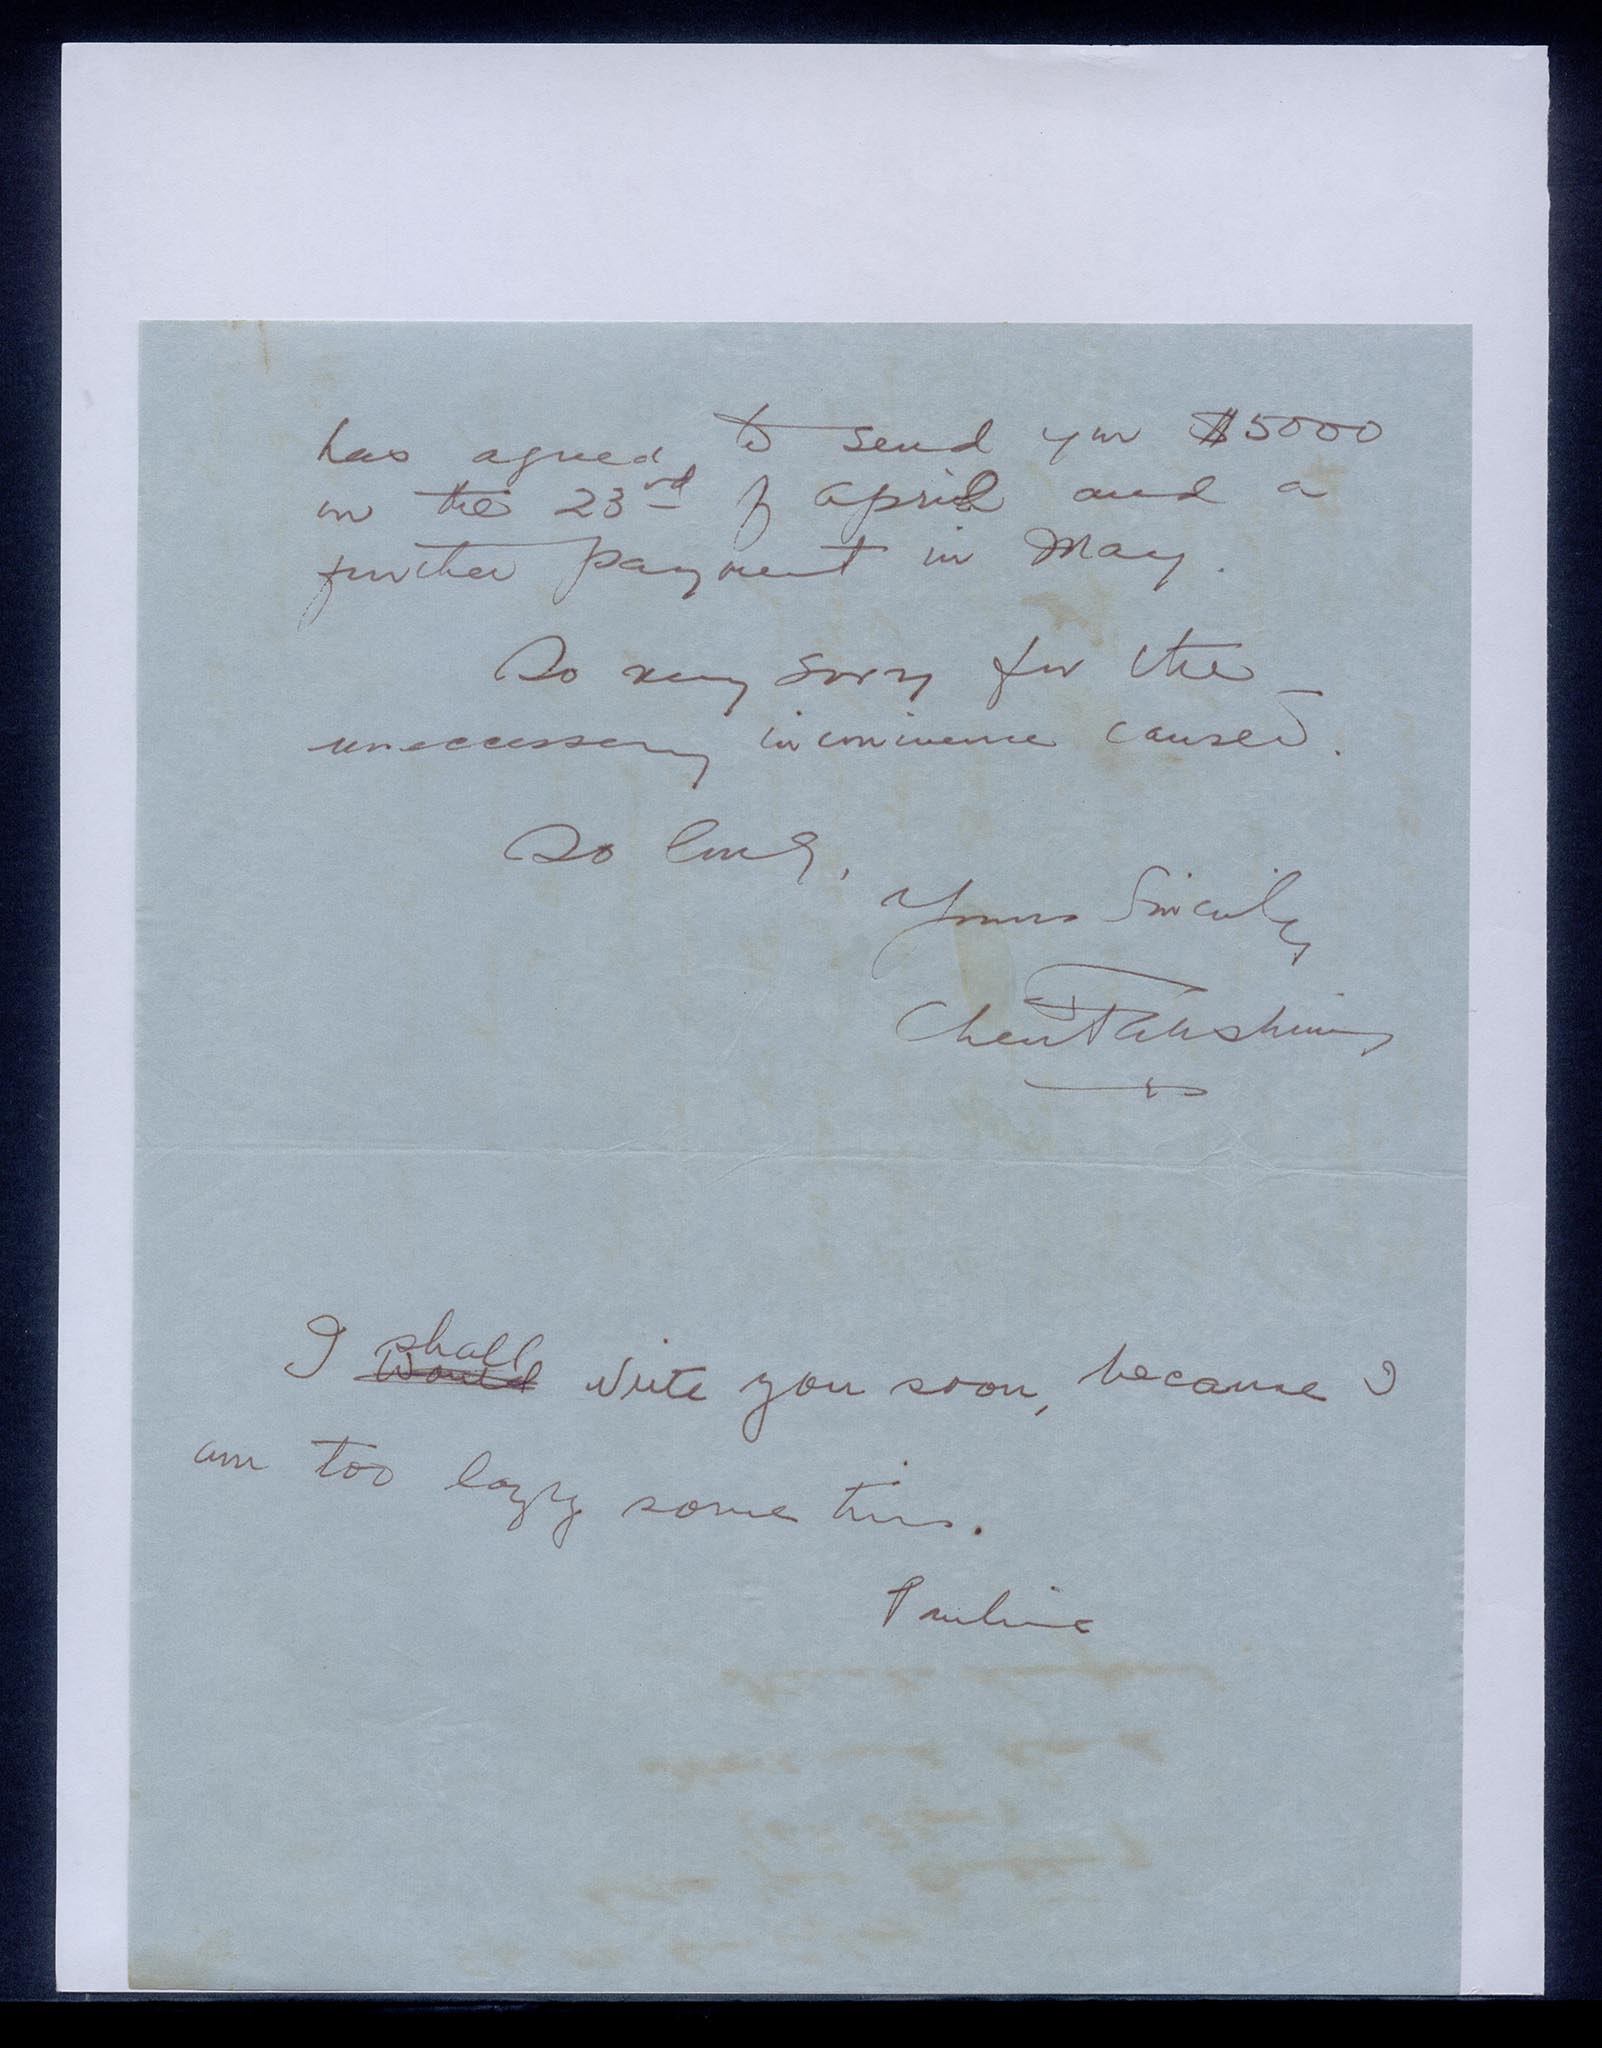 has agreed to send you $5000
on the 23rd of April and a
further payment in May.
So very sorry for the
unecessary inconvience caused.
So long,
Yours Sincerely
Chen
I shall would write you soon, because I
am too lazy some times.
Pauline